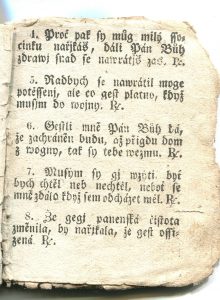 4. Proč pak sy můg milý ssocinku nařjkáš, dáli Pán Bůh
zdrawj snad se nawrátjš zas. ℟.
5. Radbych se nawrátil moge
potěssenj, ale co gest platno, když
musym do wogny. ℟.
6. Gestli mně Pán Bůh dá,
že zachráněn budu, až přigdu dom
z wogny, tak sy tebe wezmu. ℟.
7. Musym sy gi wzyti, byť
bych chtěl neb nechtěl, neboť se
mně zdálo když sem odcházet měl. ℟.
8. Že gegj panenská čistota
změnila, by nařjkala, že gest ossizená ℟.